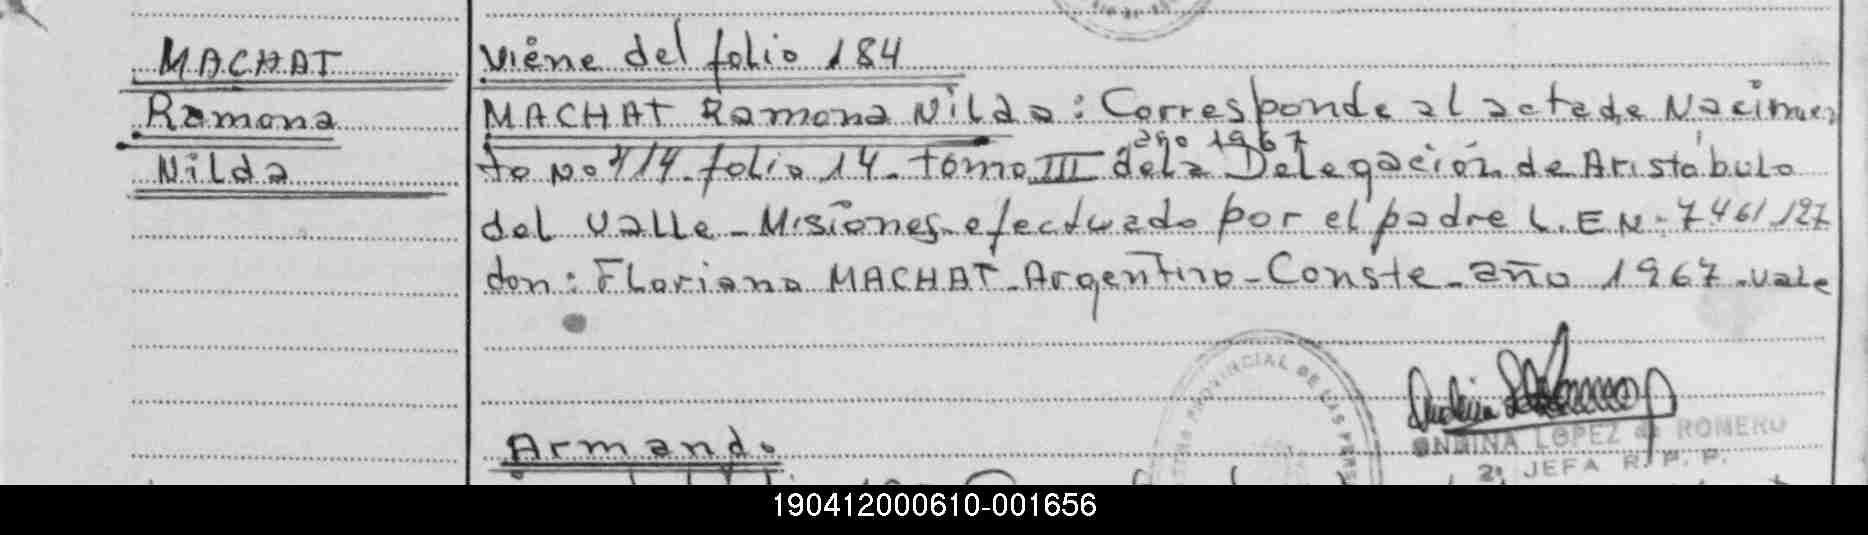 MACHAT
Ramona
Nilda
Viene del folio 184
MACHAT Ramona Nilda: Corresponde al acta de Nacimien
año 1967
to No 414 folio 14 - tomo III de la Delegación de Aristóbulo
del Valle - Misiones - efectuado por el padre L.E.N: 7461127
don: Floriano MACHAT - Argentino - Conste - año 1967 - vale
PROVINCIAL DE LAS PERS
ONDINA LOPEZ de ROMERO
2ª JEFA R. P. P.
Armando
190412000610-001656